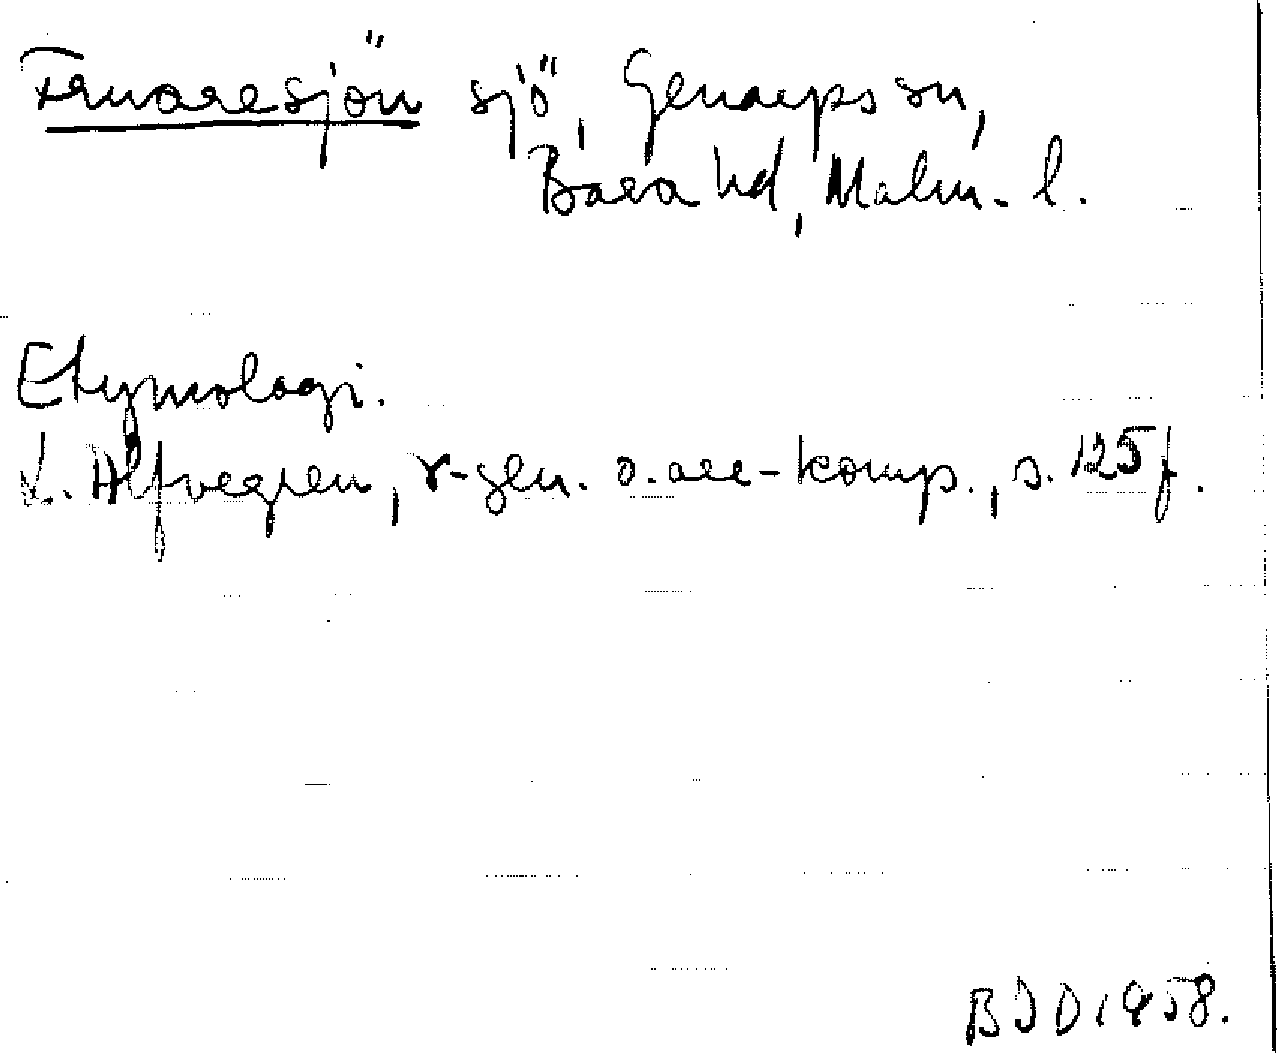 Fruaresjön sjö, Genarps sn,
Bara hd, Malm. l.
Etymologi.
L. Alfvegren, r-gen. o. are-komp., s. 125 f.
BJD 1958.